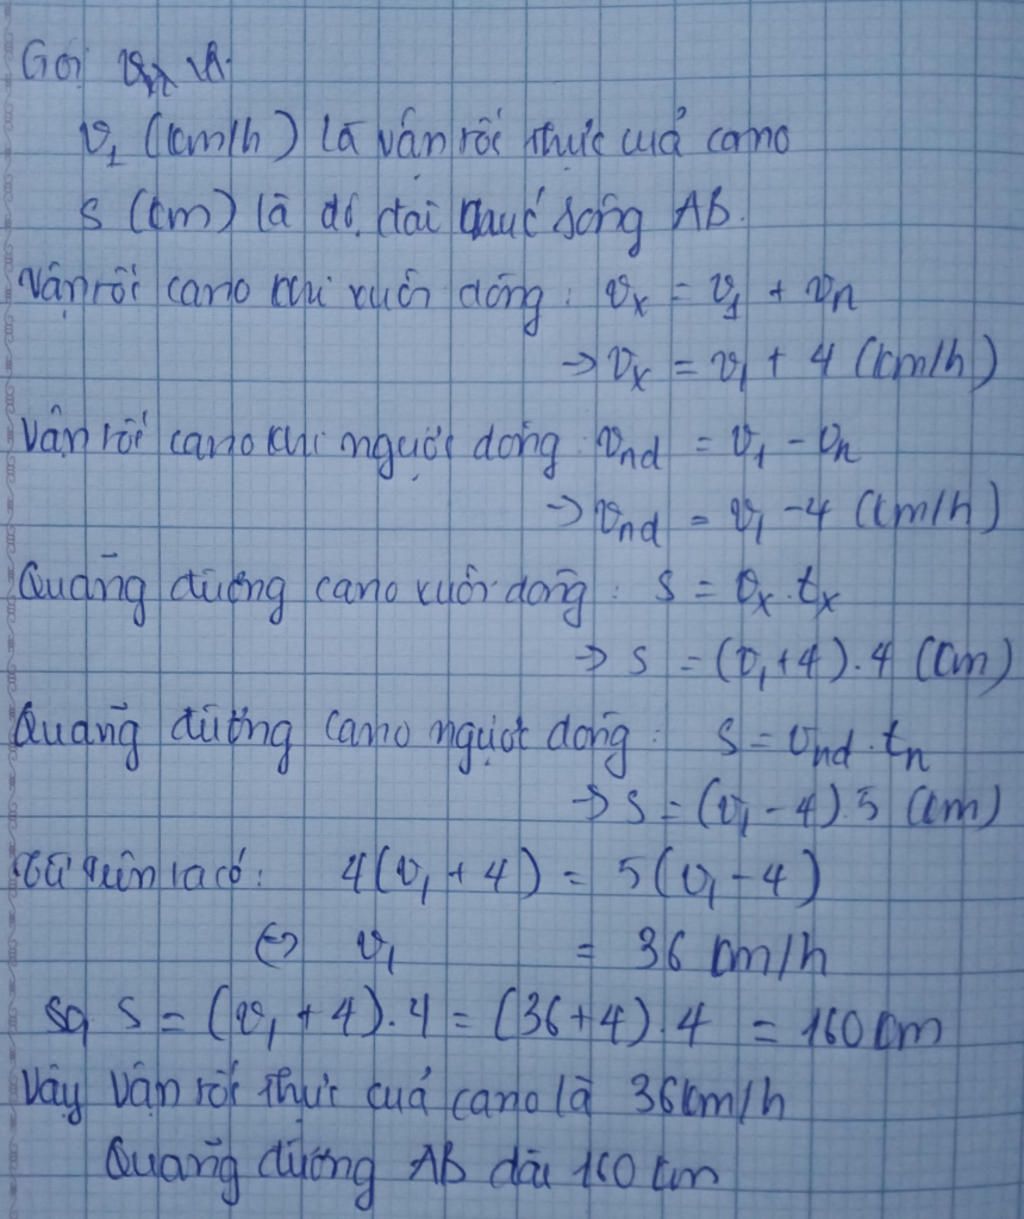 Gọi
v₁ (km/h) là vận tốc thực của cano
s (km) là độ dài khúc sông AB.
Vận tốc cano khi xuôi dòng: vₓ = v₁ + vₙ
→ vₓ = v₁ + 4 (km/h)
Vận tốc cano khi ngược dòng: v_nd = v₁ - vₙ
→ v_nd = v₁ - 4 (km/h)
Quãng đường cano xuôi dòng: s = vₓ . tₓ
⇒ s = (v₁ + 4) . 4 (km)
Quãng đường cano ngược dòng: s = v_nd . tₙ
⇒ s = (v₁ - 4) . 5 (km)
Từ trên ta có: 4(v₁ + 4) = 5(v₁ - 4)
⇔ v₁ = 36 km/h
s = (v₁ + 4) . 4 = (36 + 4) . 4 = 160 km
Vậy vận tốc thực của cano là 36 km/h
Quãng đường AB dài 160 km